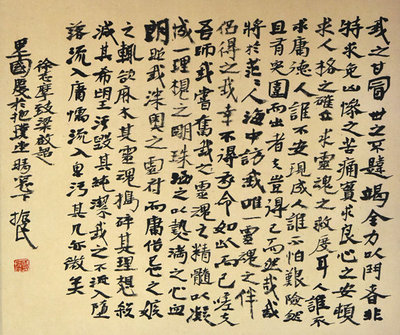 我之甘冒世之不韙竭全力以鬥者非
特求免凶慘之苦痛實求良心之安頓
求人格之確立求靈魂之救度耳人誰不
求庸德人誰不安現成人誰不怕艱險然
且有突圍而出者夫豈得已而然哉我
將於茫茫人海中訪我唯一靈魂之伴
侶得之我幸不得我命如此而已嗟夫
吾師我嘗奮我靈魂之精髓以凝
成一理想之明珠涵之以熱滿之心血
朗照我深奧之靈府而庸俗忌之嫉
之輒欲麻木其靈魂搗碎其理想殺
滅其希望污毀其純潔我之不流入墮
落流入庸懦流入卑污其几亦微矣
徐志摩致梁啟超
國慶於